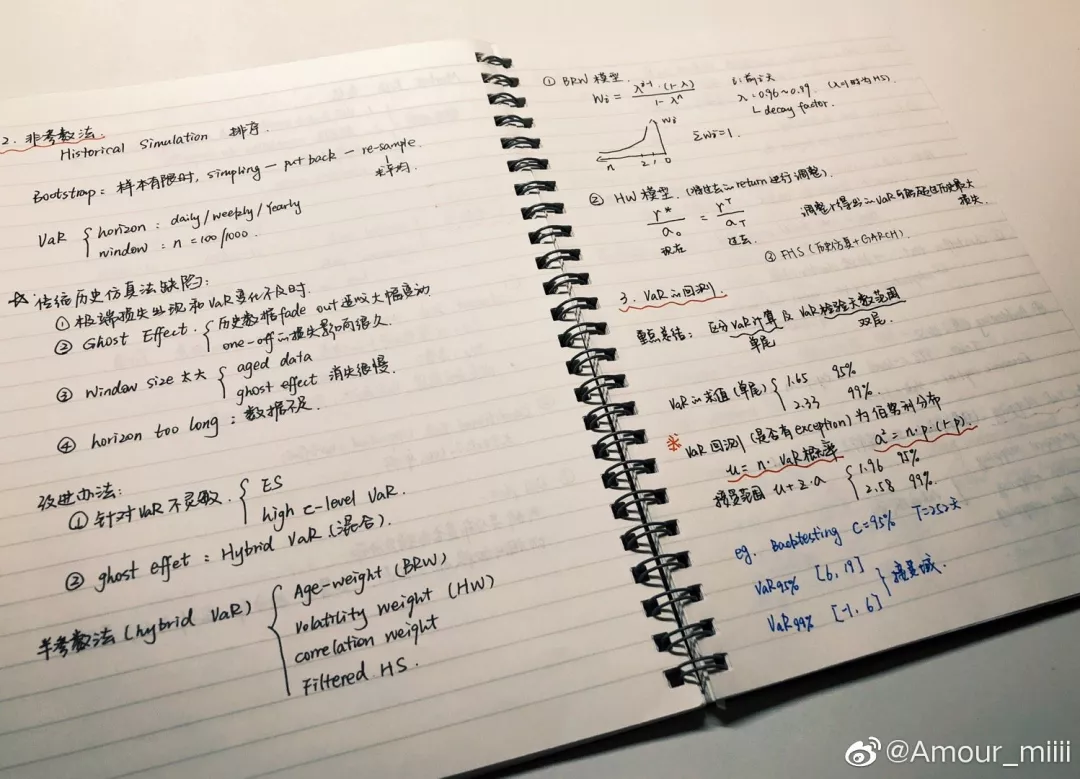 2. 非参数法.
Historical Simulation 排序.
Bootstrap: 样本有限时, simpling — put back — re-sample.
求平均.
VaR { horizon: daily/weekly/Yearly
window: n=100/1000.
☆ 传统历史仿真法缺陷:
① 极端损失出现和VaR变化不及时.
② Ghost Effect. { 历史数据fade out造成大幅变动
one-off的损失影响很久.
③ Window size 太大 { aged data
ghost effect 消失很慢.
④ horizon too long: 数据不足.
改进办法:
① 针对VaR不灵敏. { ES
high c-level VaR.
② ghost effet: Hybrid VaR (混合).
半参数法 (hybrid VaR) { Age-weight (BRW)
volatility weight (HW)
correlation weight
Filtered HS.
① BRW 模型.
Wi = λ^(i-1)·(1-λ) / 1-λ^n
i: 前i天
λ: 0.96~0.99 (λ=1时为HS).
decay factor.
Wi
n 2 1 0
Σwi=1.
② HW 模型. (将过去的return进行调整).
r*/a0 = rT/aT
现在 过去.
调整后得到的VaR可能超过历史最大
损失.
③ FHS (历史仿真+GARCH).
3. VaR的回测.
重点总结: 区分VaR计算及VaR检验天数范围
单尾 双尾.
VaR的求值(单尾) { 1.65 95%
2.33 99%.
※ VaR回测 (是否有exception) 为伯努利分布
u = n· VaR概率 a² = n·p·(1-p).
接受范围 u±z·a { 1.96 95%
2.58 99%.
eg. Backtesting C=95% T=252天
VaR95% [6, 19] } 接受域.
VaR99% [-1, 6]
@Amour_miiii